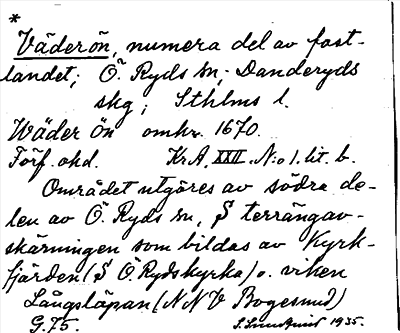 *
Väderön, numera del av fast-
landet; Ö. Ryds sn; Danderyds
skg; Sthlms l.
Wäder Ön omkr. 1670.
Förf. okd. Kr A, XXII. N:o 1. lit. b.
Området utgöres av södra de-
len av Ö. Ryds sn, S terrängav-
skärningen som bildas av Kyrk-
fjärden (S Ö. Ryds kyrka) o. viken
Långsläpan (NNV Bogesund)
G. 75. 1935.